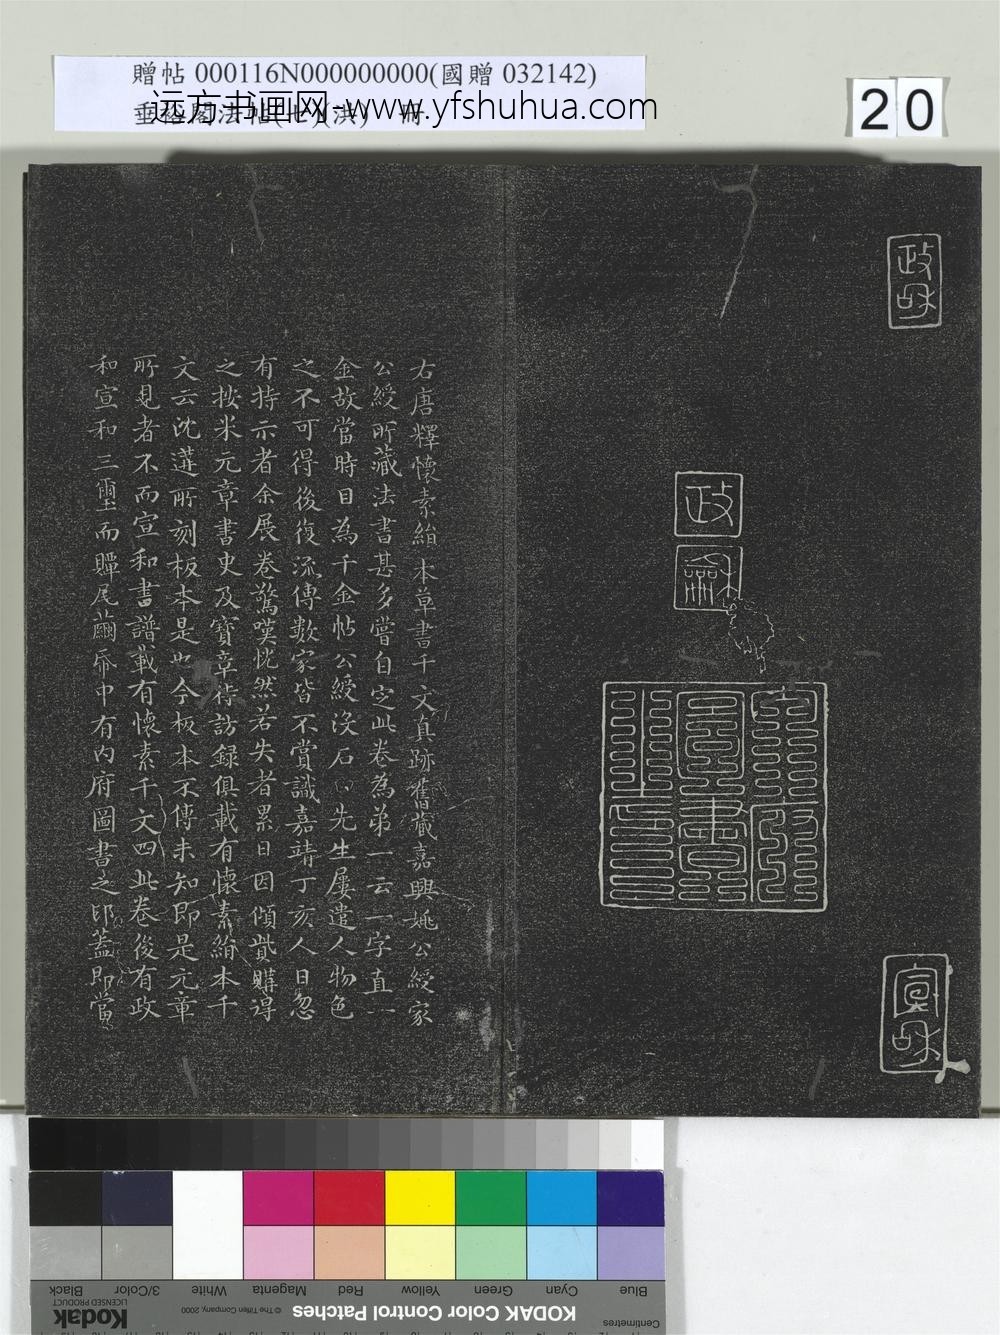 贈帖 000116N000000000(國贈 032142)
远方书画网-www.yfshuhua.com
20
政和
政
龢
宣和
右唐釋懷素絹本草書千文真跡舊藏嘉興姚公綬家
公綬所藏法書甚多嘗自定此卷為弟一云一字直一
金故當時目為千金帖公綬沒石田先生屢遣人物色
之不可得後復流傳數家皆不賞識嘉靖丁亥人日忽
有持示者余展卷驚嘆恍然若失者累日因傾貲購得
之按米元章書史及寶章待訪錄俱載有懷素絹本千
文云沈遘所刻板本是也今板本不傳未知即是元章
所見者不而宣和書譜載有懷素千文四此卷後有政
和宣和三璽而贉尾繭帋中有內府圖書之印蓋即當
Black
3/Color
White
Magenta
Red
Yellow
Green
Cyan
Blue
Kodak
LICENSED PRODUCT
© The Tiffen Company, 2000
KODAK Color Control Patches
Centimetres